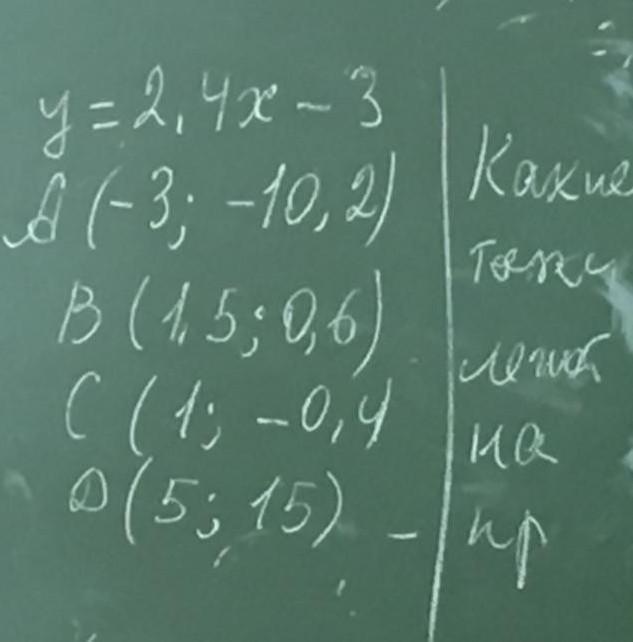 y = 2,4x - 3
A (-3; -10,2)
B (1,5; 0,6)
C (1; -0,4
D (5; 15) -
Какие
точки
лежат
на
пр